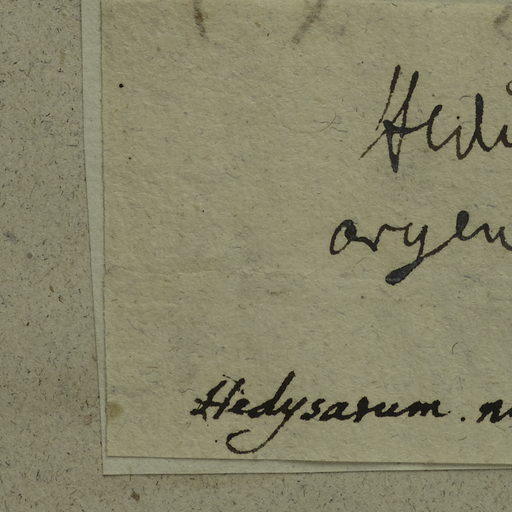 Hedi
argen
Hedysarum . n